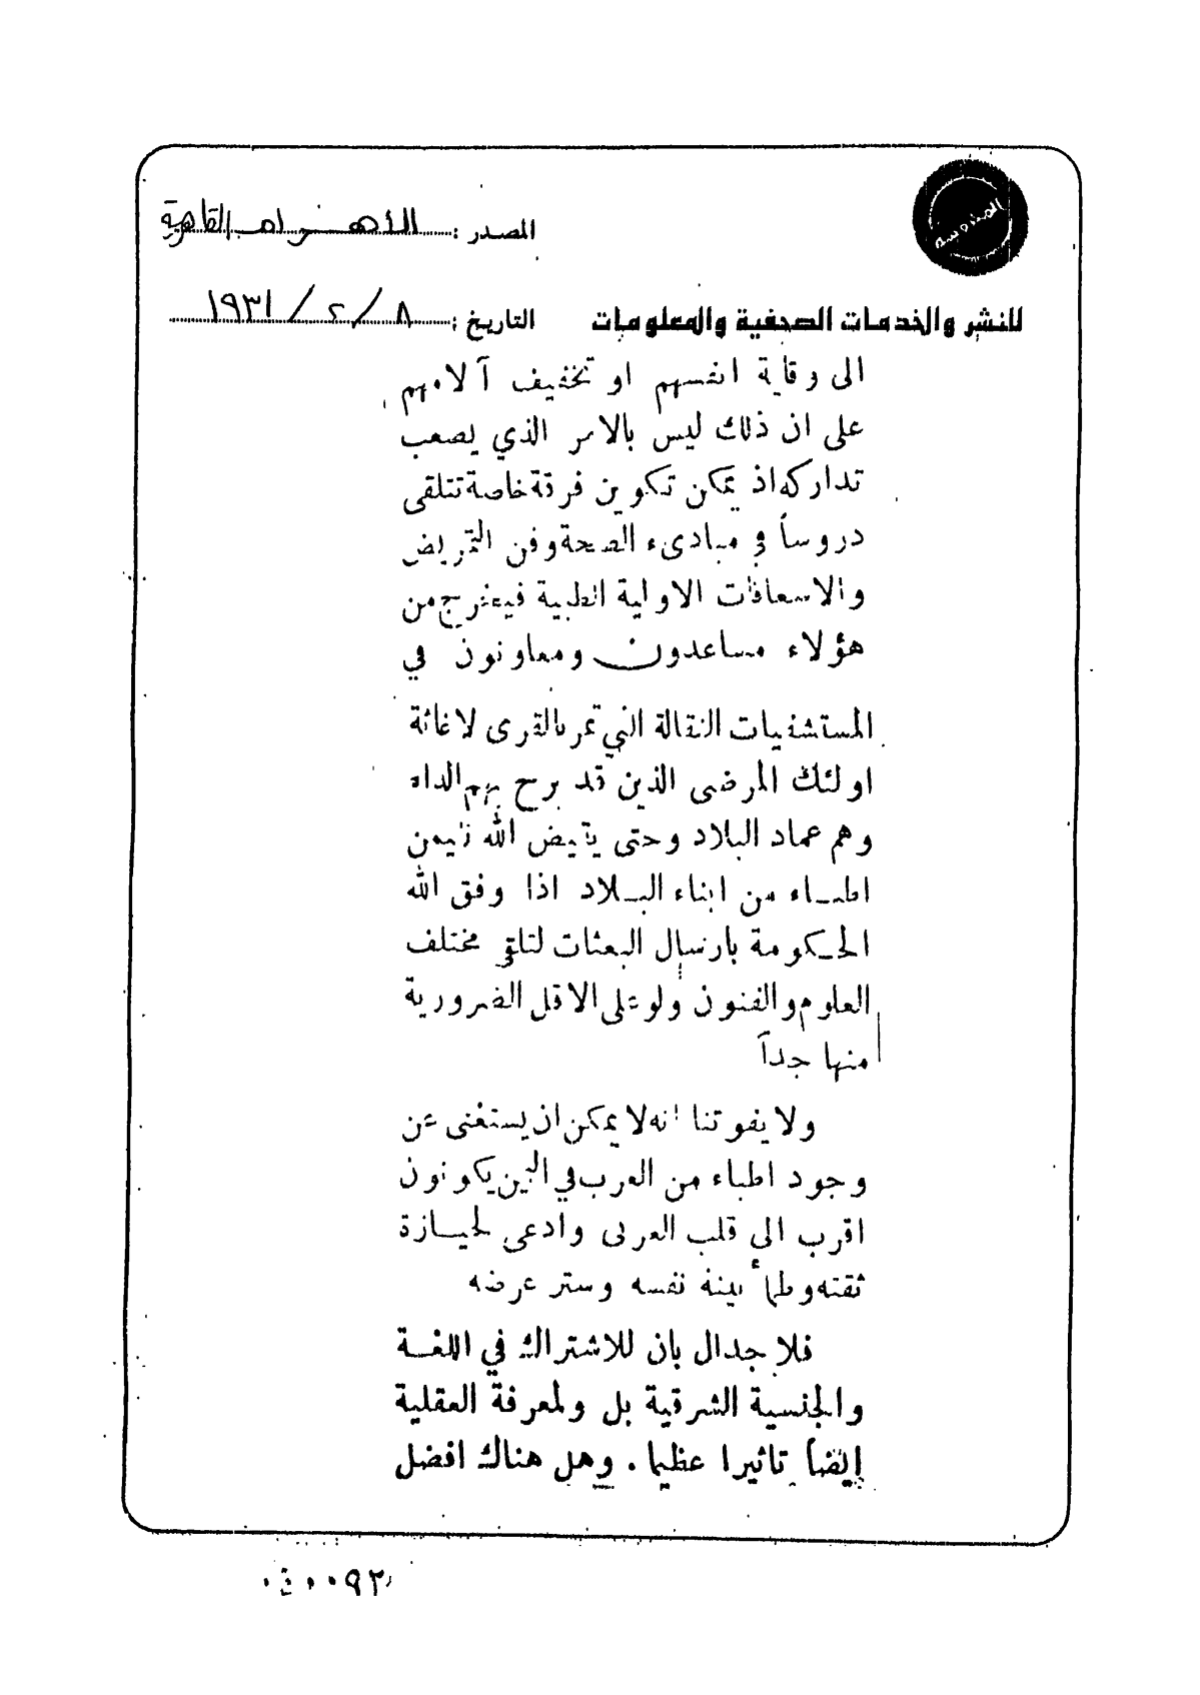 المصدر : الأهرام القاهرية
للنشر والخدمات الصحفية والمعلومات
التاريخ : ٨ / ٢ / ١٩٣١
الى وقاية انفسهم او تخفيف آلامهم
على ان ذلك ليس بالامر الذي يصعب
تداركه اذ يمكن تكوين فرقة خاصة تتلقى
دروساً في مبادىء الصحة وفن التمريض
والاسعافات الاولية الطبية فيتخرج من
هؤلاء مساعدون ومعاونون في
المستشفيات النقالة التي تمر بالقرى لاغاثة
اولئك المرضى الذين قد برح بهم الداء
وهم عماد البلاد وحتى يقيض الله
اطباء من ابناء البلاد اذا وفق الله
الحكومة بارسال البعثات لتلقى مختلف
العلوم والفنون ولو على الاقل الضرورية
منها جداً
ولا يفوتنا انه لا يمكن ان يستغنى عن
وجود اطباء من العرب في اليمن يكونون
اقرب الى قلب العربى وادعى لحيازة
ثقته وطمأنينة نفسه وستر عرضه
فلا جدال بان للاشتراك في اللغة
والجنسية الشرقية بل ولمعرفة العقلية
ايضاً تاثيرا عظيما . وهل هناك افضل